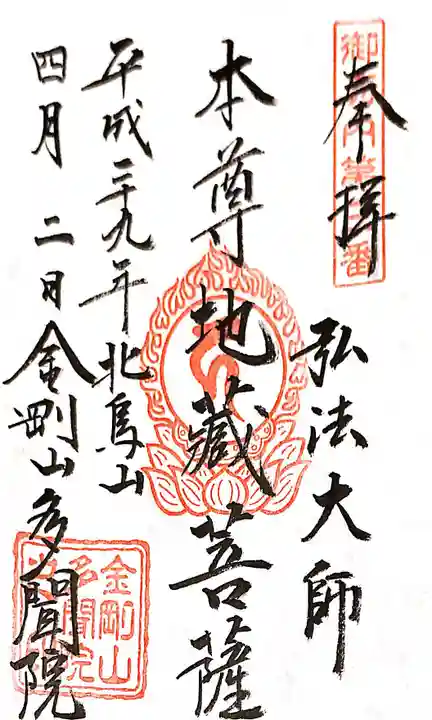 奉拝
弘法大師
本尊地蔵菩薩
平成二十九年北烏山
四月二日金剛山多聞院
金剛山
多聞院